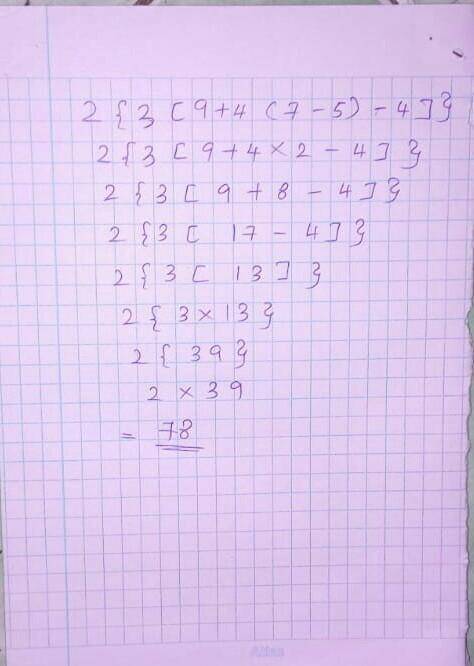 2 { 3 [ 9 + 4 ( 7 - 5 ) - 4 ] }
2 { 3 [ 9 + 4 × 2 - 4 ] }
2 { 3 [ 9 + 8 - 4 ] }
2 { 3 [ 17 - 4 ] }
2 { 3 [ 13 ] }
2 { 3 × 13 }
2 { 39 }
2 × 39
= 78
Atlas